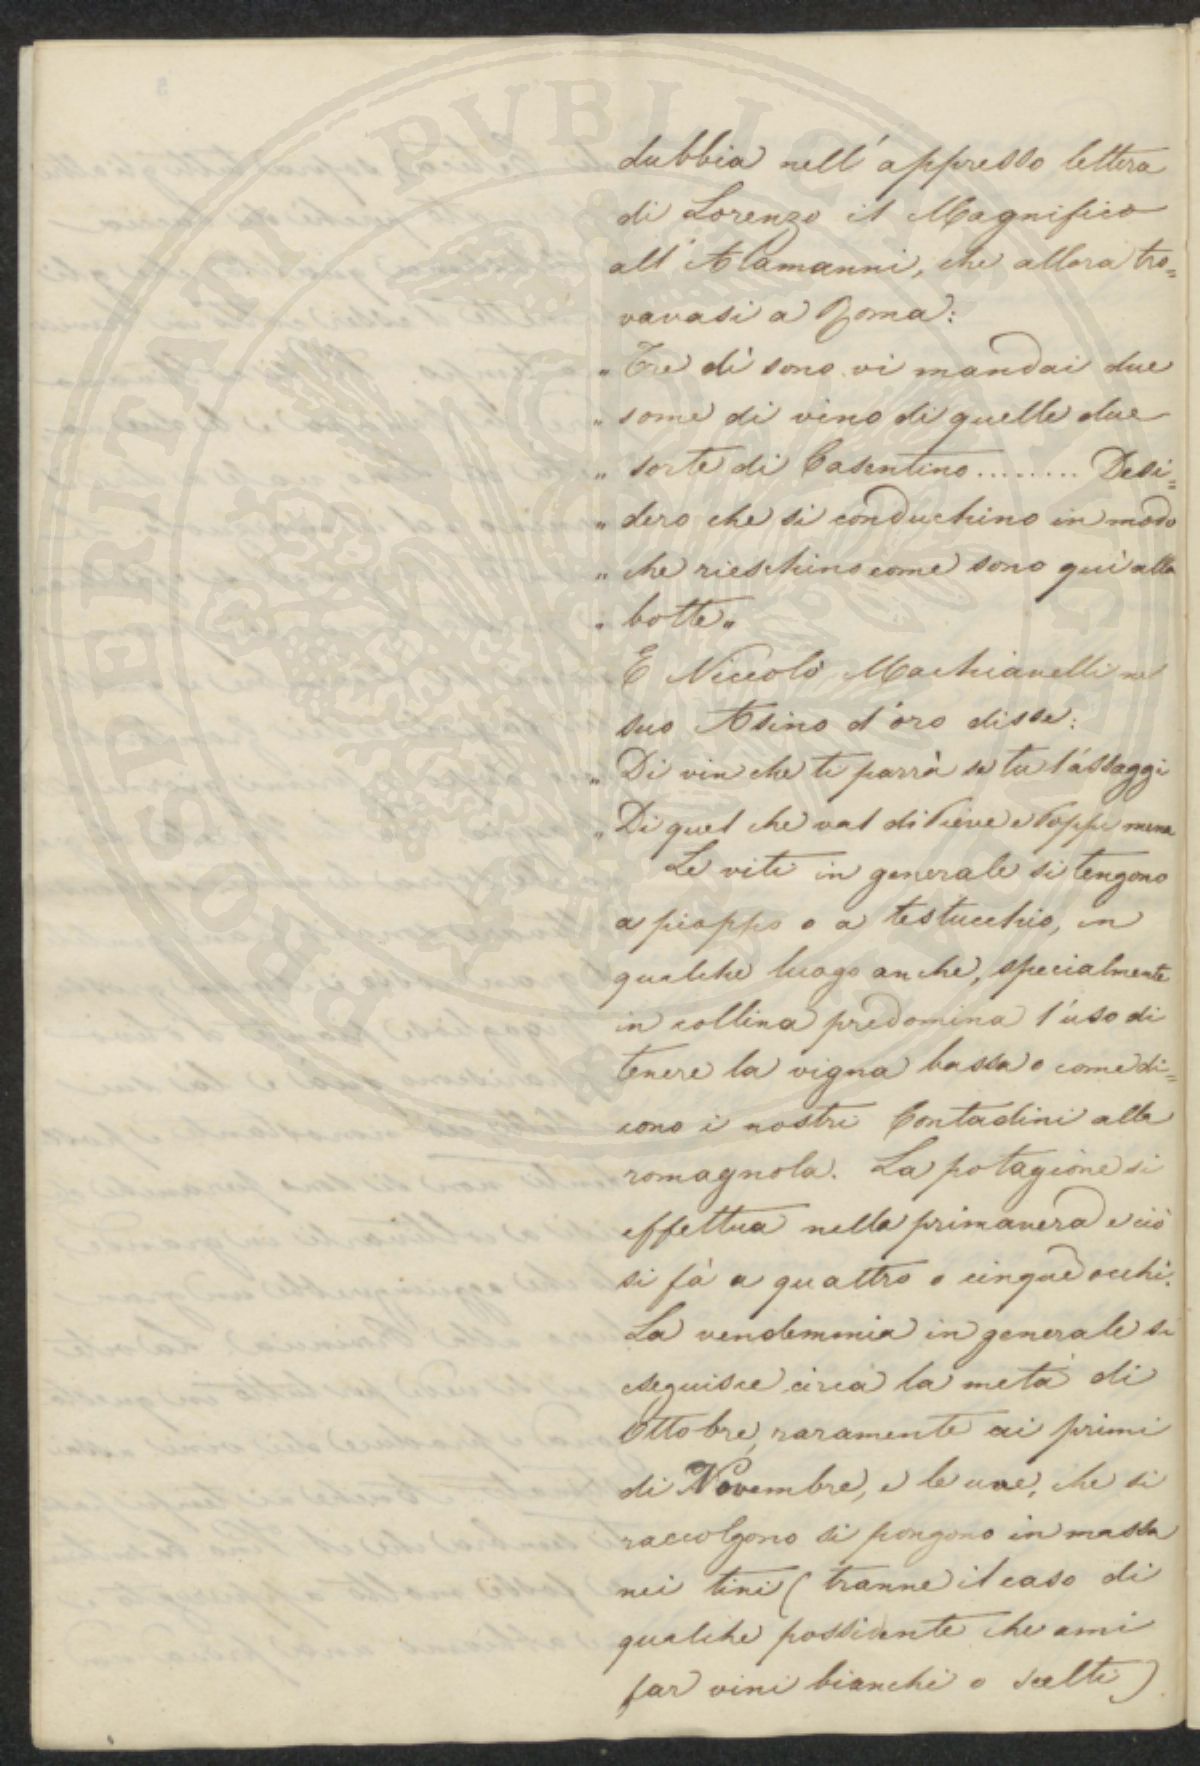 dubbia nell'appresso lettera
di Lorenzo il Magnifico
all'Alamanni, che allora tro=
vavasi a Roma:
„ Tre dì sono vi mandai due
„ some di vino di quelle due
„ sorte di Casentino ........ Desi=
„ dero che si conduchino in modo
„ che rieschino come sono quì alla
„ botte „
E Niccolò Machiavelli nel
suo Asino d'oro disse:
„ Di vin che ti parrà se tu l'assaggi
„ Di quel che val di Pieve e Poppi mena
Le viti in generale si tengono
a pioppo o a testucchio, in
qualche luogo anche, specialmente
in collina predomina l'uso di
tenere la vigna bassa o come di=
cono i nostri Contadini alla
romagnola. La potagione si
effettua nella primavera e ciò
si fà a quattro o cinque occhi.
La vendemmia in generale si
eseguisce circa la metà di
Ottobre, raramente ai primi
di Novembre, e le uve, che si
raccolgono si pongono in massa
nei tini (tranne il caso di
qualche possidente che ami
far vini bianchi o scelti)
PROSPERITATI PVBLICAE